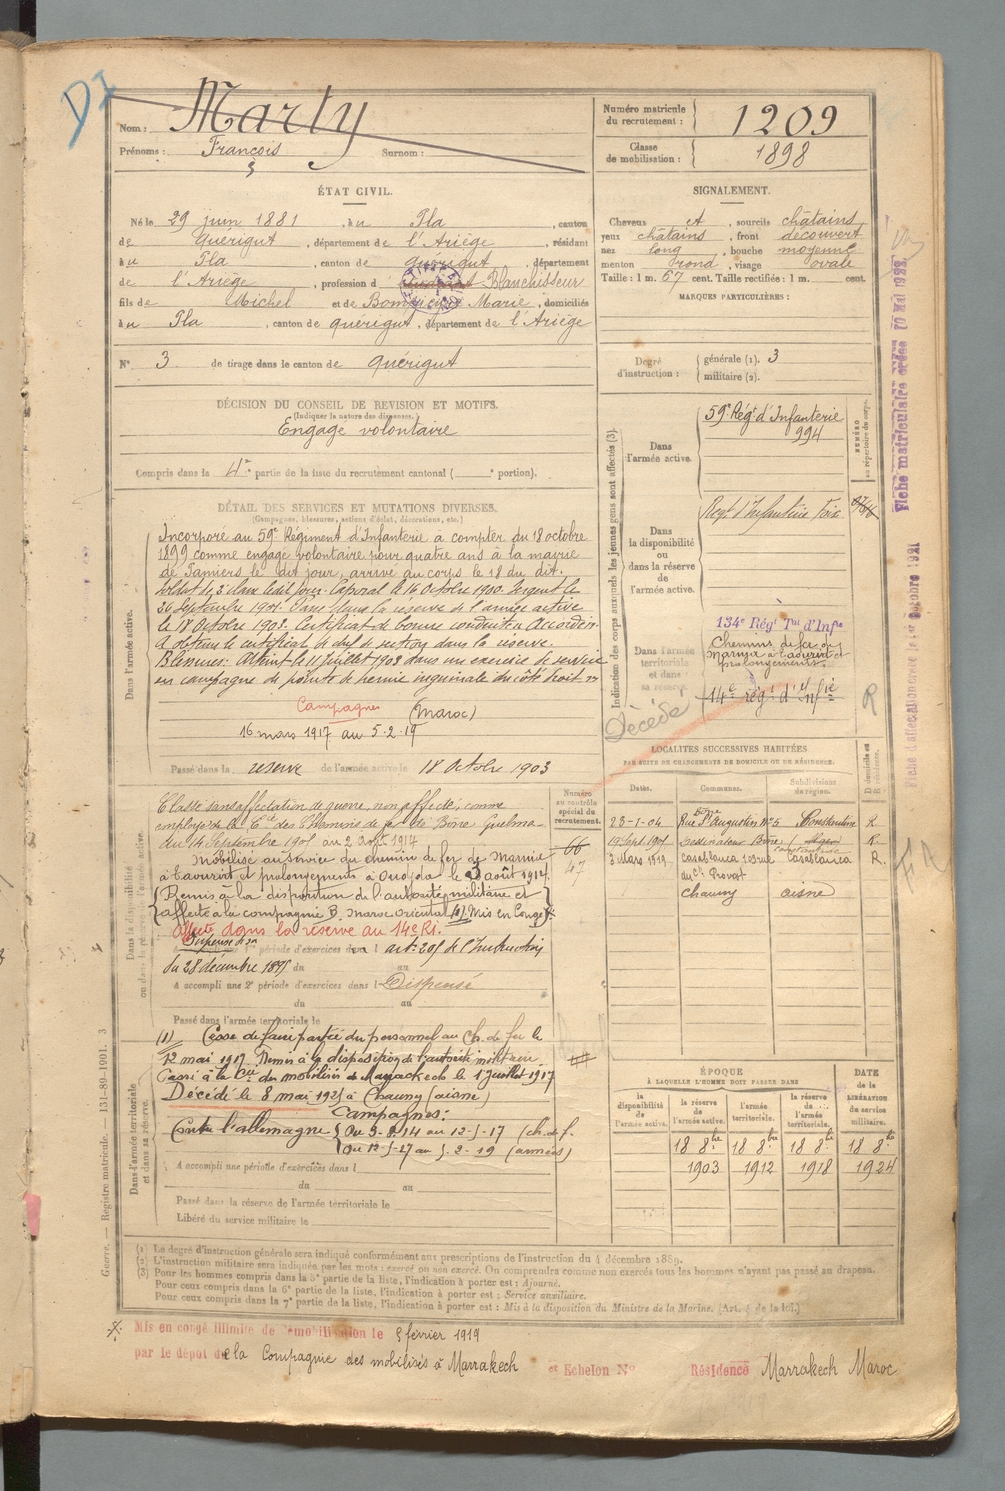 DI
Nom : Marty
Prénoms : François Surnom :
3
Numéro matricule du recrutement : 1209
Classe de mobilisation : 1898
ÉTAT CIVIL.
Né le 29 juin 1881, à u Pla, canton
de Quérigut, département de l'Ariège, résidant
à u Pla, canton de Quérigut, département
de l'Ariège, profession d Blanchisseur
fils de Michel et de Marie, domiciliés
à u Pla, canton de Quérigut, département de l'Ariège
N° 3 de tirage dans le canton de Quérigut
SIGNALEMENT.
Cheveux et, sourcils châtains
yeux châtains, front découvert
nez long, bouche moyenne
menton rond, visage ovale
Taille : 1 m. 67 cent. Taille rectifiée : 1 m. cent.
MARQUES PARTICULIÈRES :
Degré d'instruction : générale (1). 3
militaire (2).
DÉCISION DU CONSEIL DE REVISION ET MOTIFS.
(Indiquer la nature des dispenses.)
Engagé volontaire
Compris dans la 4e partie de la liste du recrutement cantonal ( e portion).
DÉTAIL DES SERVICES ET MUTATIONS DIVERSES.
(Campagnes, blessures, actions d'éclat, décorations, etc.)
Dans l'armée active.
Incorporé au 59e Régiment d'Infanterie à compter du 18 octobre
1899 comme engagé volontaire pour quatre ans à la mairie
de Pamiers le dit jour, arrivé au corps le 18 du dit.
Soldat de 2e classe ledit jour. Caporal le 16 Octobre 1900. Sergent le
Septembre 1901. Passé dans la réserve de l'armée active
le 18 Octobre 1903. Certificat de bonne conduite Accordé.
A obtenu le certificat de chef de section dans la réserve.
Blessures : Atteint le 11 juillet 1902 dans un exercice de service
en campagne de pointe de hernie inguinale du côté droit
Campagnes (Maroc)
16 mars 1917 au 5-2-19
Passé dans la réserve de l'armée active le 18 Octobre 1903
Indication des corps auxquels les jeunes gens sont affectés (3).
Dans l'armée active.
59e Régt d'Infanterie
994
NUMÉRO au répertoire du corps.
Dans la disponibilité ou dans la réserve de l'armée active.
Regt d'Infanterie Foix
Dans l'armée territoriale et dans sa réserve.
134e Régt Tal d'Infie
Chemins de fer de
Marnia à Taourirt et
prolongements.
14e régt d'Infie
Décédé
R
Fiche matriculaire créée 10 Mai 1922.
Fiche d'affectation créée le 1er Octobre 1921
Dans la disponibilité ou dans la réserve de l'armée active.
Classé sans affectation de guerre, non affecté, comme
employé de la Cie des Chemins de fer de Bône Guelma
du 14 Septembre 1905 au 2 Août 1914
Mobilisé au service du chemin de fer de Marnia
à Taourirt et prolongements à Oujda le 3 août 1914.
Remis à la disposition de l'autorité militaire et
affecté à la compagnie B. Maroc Oriental (1). Mis en Congé
Affecté dans la réserve au 14e R.I.
Numéro au contrôle spécial du recrutement.
66
47
Dispensé de sa période d'exercices dans l art. 205 de l'Instruction
du 28 décembre 1895 du au
A accompli une 2e période d'exercices dans l Dispensé
du au
Passé dans l'armée territoriale le
Dans l'armée territoriale et dans sa réserve.
(1) Cesse de faire partie du personnel au Ch. de fer le
12 mai 1917. Remis à la disposition de l'autorité militaire.
Passé à la Cie des mobilisés de Marrackech le 1 juillet 1917
Décédé le 8 mai 1925 à Chauny (aisne)
Campagnes :
Contre l'allemagne { Du 3-8-14 au 12-5-17 (ch. d. f.
Du 12-5-17 au 5-2-19 (armées)
A accompli une période d'exercices dans l
du au
Passé dans la réserve de l'armée territoriale le
Libéré du service militaire le
LOCALITÉS SUCCESSIVES HABITÉES
PAR SUITE DE CHANGEMENTS DE DOMICILE OU DE RÉSIDENCE.
Dates. Communes. Subdivisions de région. D domicile ou R résidence.
23-1-04 Bône Rue St Augustin No 5 Constantine R.
19 Sept 1905 Bône R.
3 Mars 1919 Casablanca Casablanca R.
du Ct Provost
Chauny aisne
ÉPOQUE
À LAQUELLE L'HOMME DOIT PASSER DANS
la disponibilité de l'armée active. la réserve de l'armée active. l'armée territoriale. la réserve de l'armée territoriale.
DATE de la LIBÉRATION du service militaire.
18 8bre 18 8bre 18 8bre 18 8bre
1903 1912 1918 1924
(1) Le degré d'instruction générale sera indiqué conformément aux prescriptions de l'instruction du 4 décembre 1889.
(2) L'instruction militaire sera indiquée par les mots : exercé ou non exercé. On comprendra comme non exercés tous les hommes n'ayant pas passé au drapeau.
(3) Pour les hommes compris dans la 5e partie de la liste, l'indication à porter est : Ajourné.
Pour ceux compris dans la 6e partie de la liste, l'indication à porter est : Service auxiliaire.
Pour ceux compris dans la 7e partie de la liste, l'indication à porter est : Mis à la disposition du Ministre de la Marine. (Art. 4 de la loi.)
Guerre. — Registre matricule. 131-89-1901. 3
Mis en congé illimité de démobilisation le 5 février 1919
par le dépôt de la Compagnie des mobilisés à Marrakech et Echelon N° Résidence Marrakech Maroc